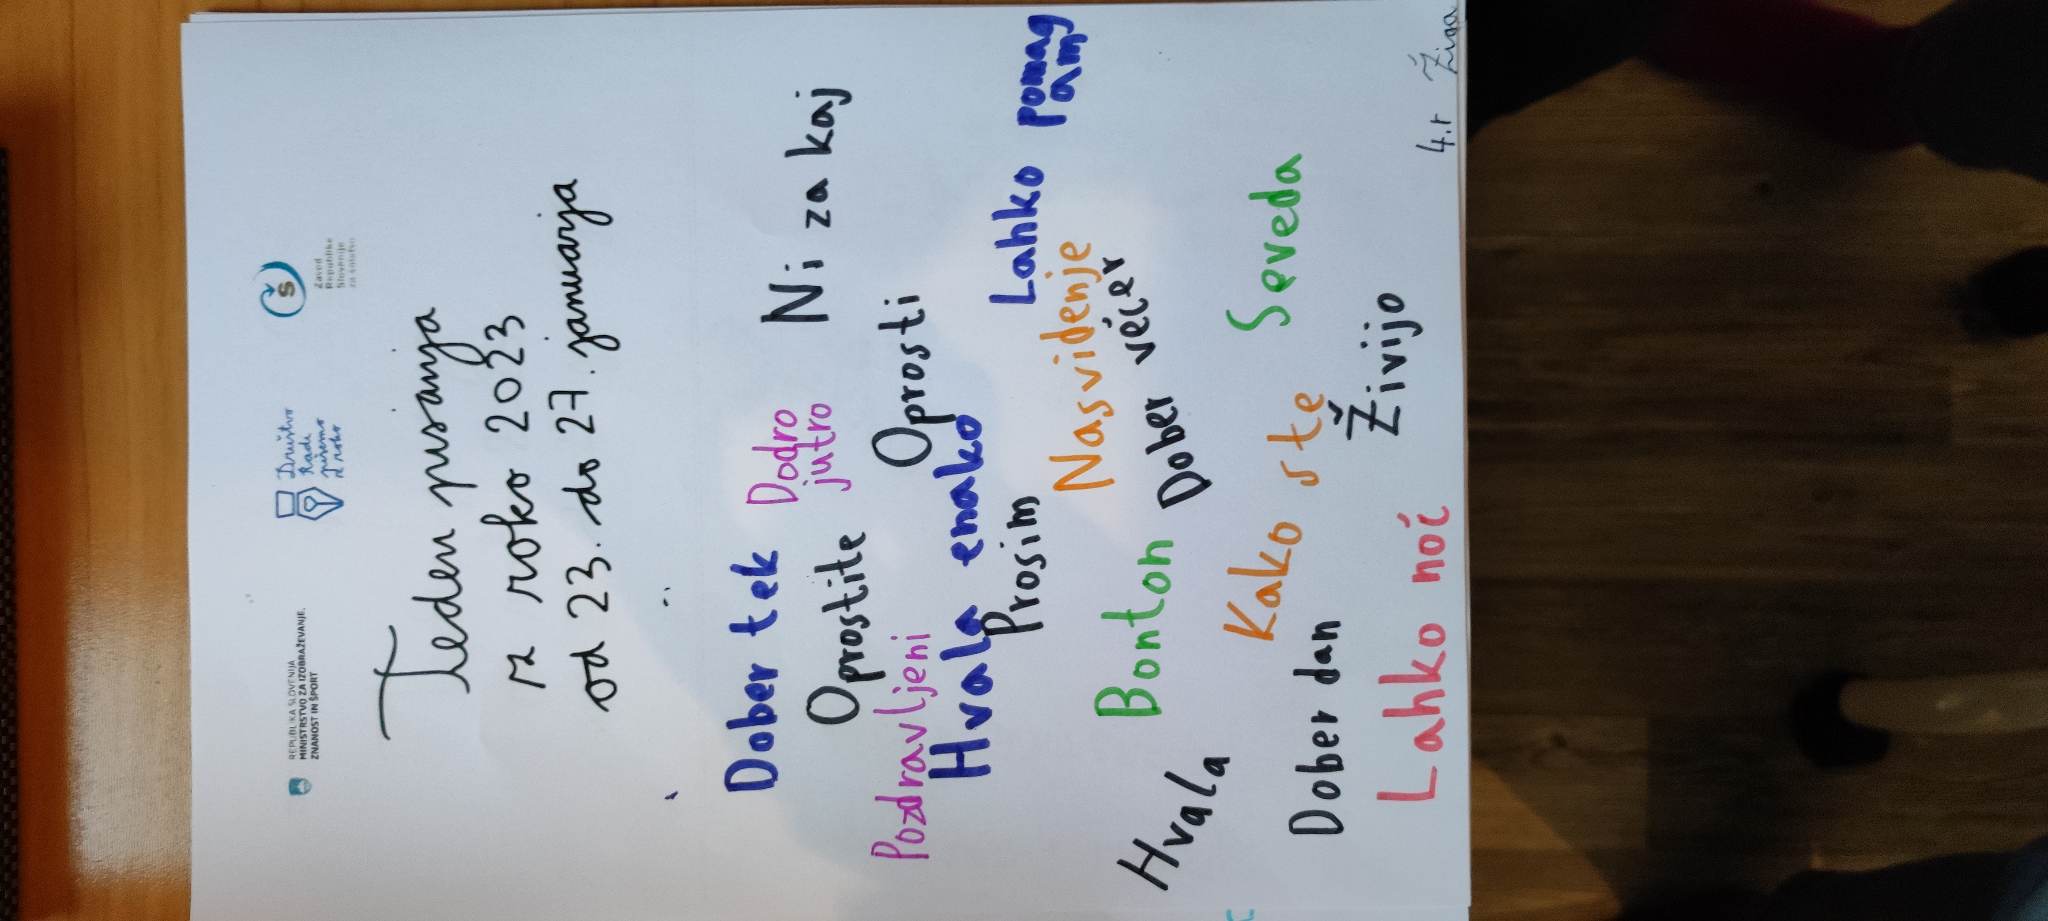 REPUBLIKA SLOVENIJA
MINISTRSTVO ZA IZOBRAŽEVANJE,
ZNANOST IN ŠPORT
Društvo
Radi
pišemo
z roko
Š
Zavod
Republike
Slovenije
za šolstvo
Teden pisanja
z roko 2023
od 23. do 27. januarja
Dober tek
Dodro
jutro
Ni za kaj
Oprostite
Oprosti
Pozdravljeni
Hvala enako
Lahko pomag
am
Prosim
Nasvidenje
Bonton
Dober véčer
Hvala
Kako ste
Seveda
Dober dan
Živijo
Lahko noč
4.r Žiga